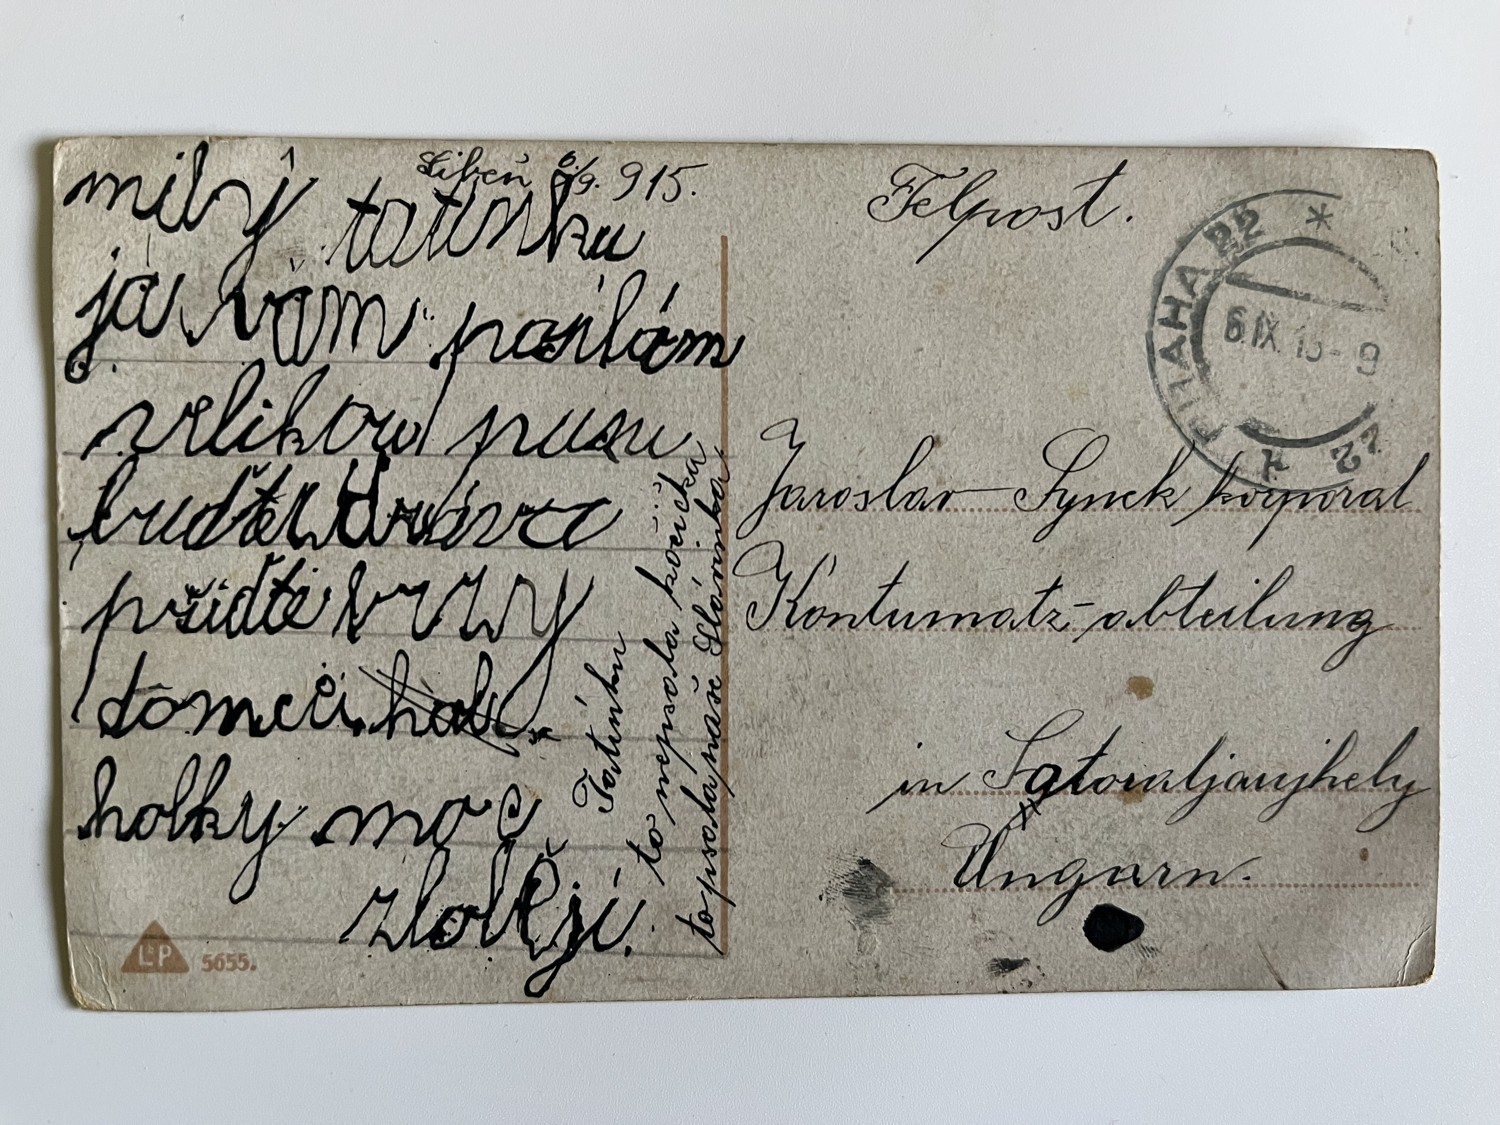 Libeň 6/9. 915.
milý tatínku
já vám posílám
velikou pusu
buďte zdráva
přiďte brzy
domu
holky moc
zlobějí.
Tatínku
to nepsala kočička
to psala naše Slávinka.
Felpost.
PRAHA 22
6.IX.15-9
Jaroslav Synek korporal
Kontumatz-abteilung
in Satoraljaujhely
Ungarn.
L&P 5655.